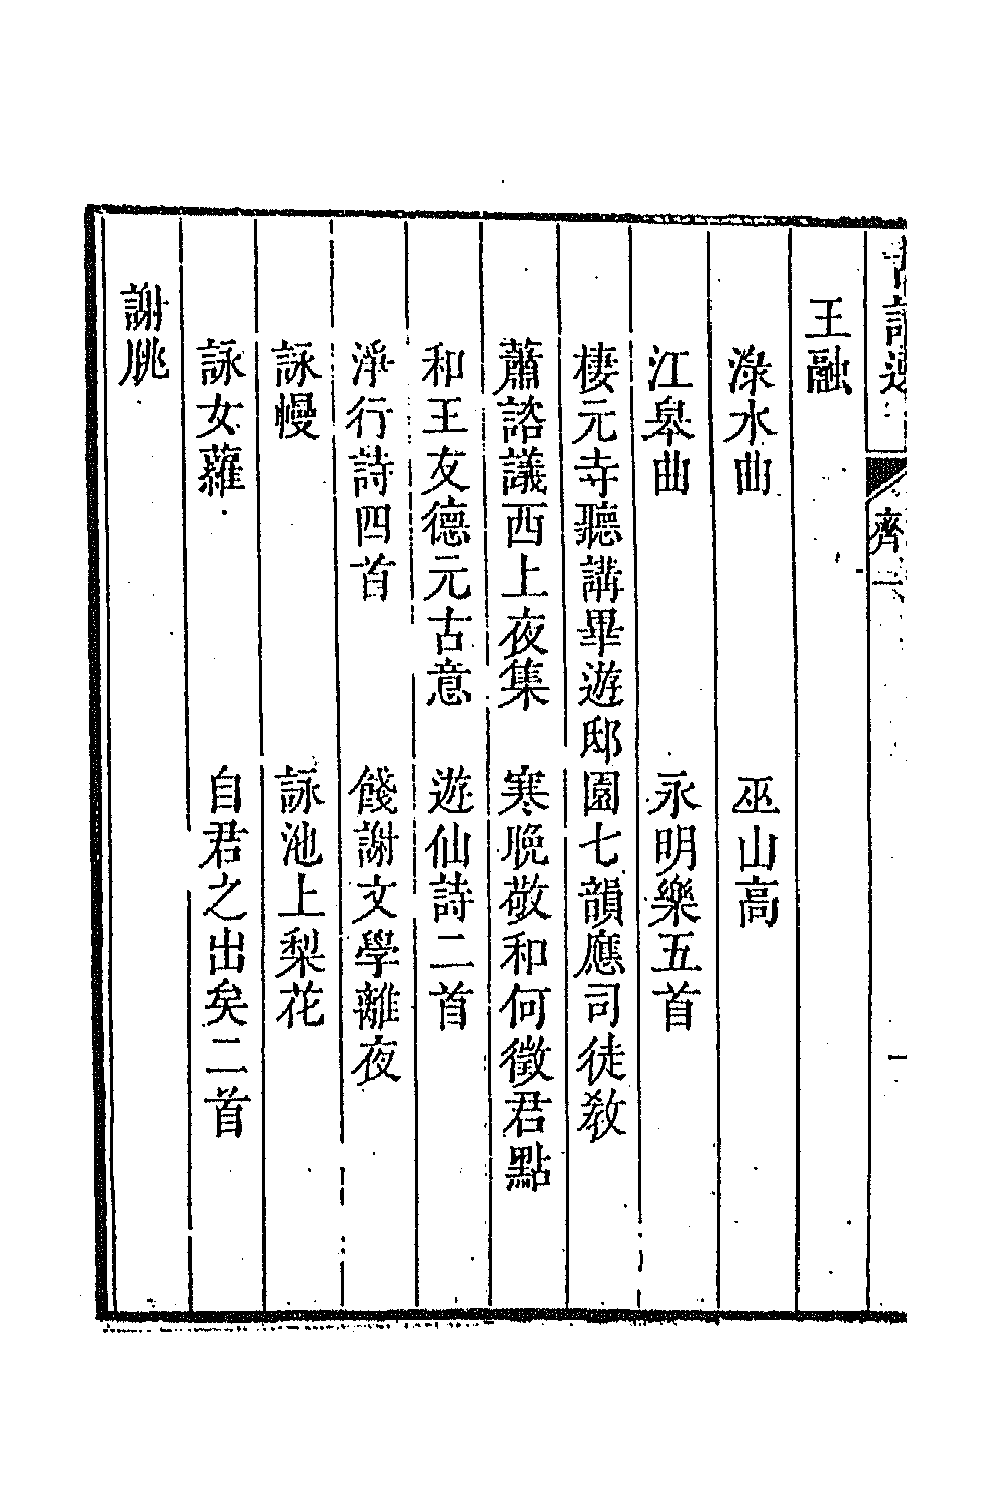 古詩選
齊
一
王融
淥水曲　巫山高
江皋曲　永明樂五首
棲元寺聽講畢遊邸園七韻應司徒敎
蕭諮議西上夜集　寒晚敬和何徵君點
和王友德元古意　遊仙詩二首
淨行詩四首　餞謝文學離夜
詠幔　詠池上梨花
詠女蘿　自君之出矣二首
謝朓